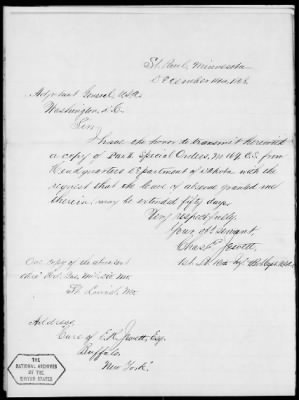 St. Paul, Minnesota
December
Adjutant General, U.S.A.
Washington, D.C.
Sir,
I have the honor to transmit herewith
a copy of Par. Special Orders, No. C.S. from
Headquarters Department of Dakota with the
request that the leave of absence granted me
therein, may be extended fifty days.
Very respectfully,
Your obt. servant,
Chas. Jewett,
1st. Lt.
One copy of
Hd. Qrs. Mil. Div. Mo.
St. Louis, Mo.
Address,
Care of E.R. Jewett, Esq.
Buffalo,
New York.
THE
NATIONAL ARCHIVES
OF THE
UNITED STATES